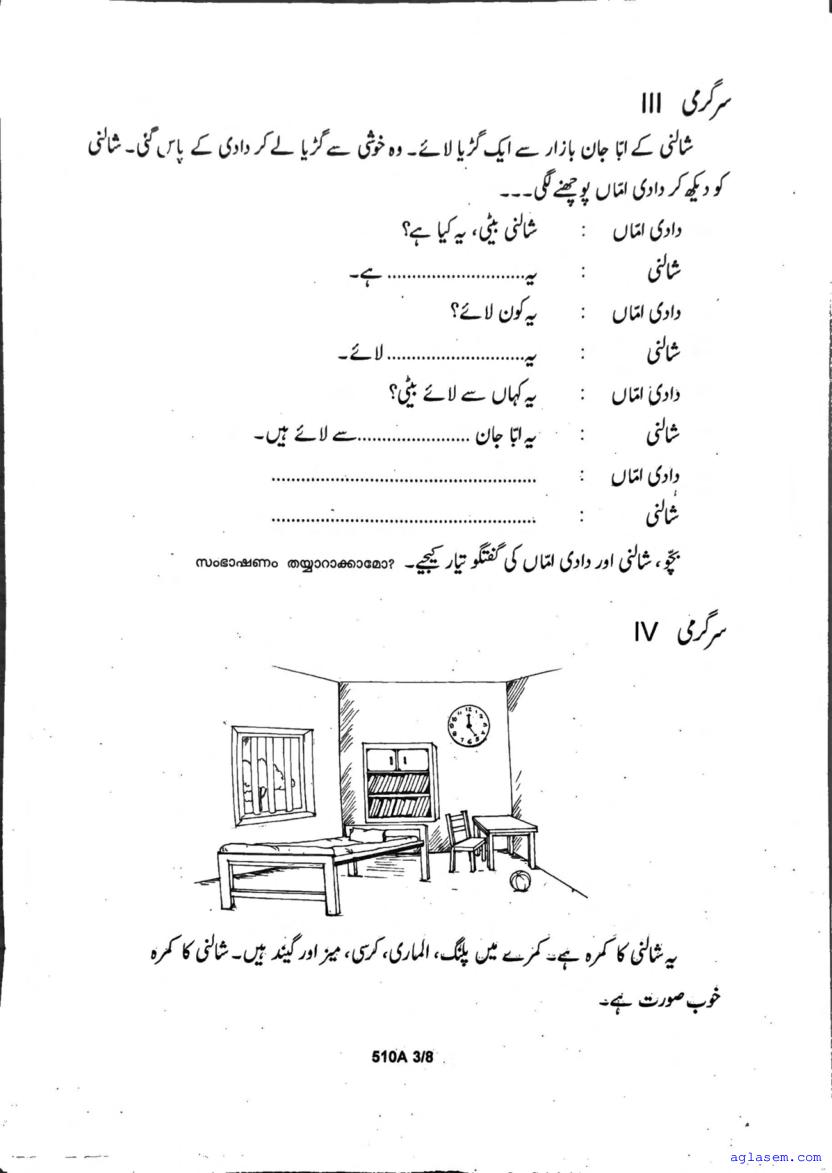 سرگرمی III
شالنی کے ابّا جان بازار سے ایک گڑیا لائے۔ وہ خوشی سے گڑیا لے کر دادی کے پاس گئی۔ شالنی
کو دیکھ کر دادی امّاں پوچھنے لگی۔۔۔
دادی امّاں : شالنی بیٹی، یہ کیا ہے؟
شالنی : یہ............................ ہے۔
دادی امّاں : یہ کون لائے؟
شالنی : یہ............................ لائے۔
دادی امّاں : یہ کہاں سے لائے بیٹی؟
شالنی : یہ ابّا جان .......................سے لائے ہیں۔
دادی امّاں : ......................................................
شالنی : ......................................................
بچّو، شالنی اور دادی امّاں کی گفتگو تیار کیجیے۔ സംഭാഷണം തയ്യാറാക്കാമോ?
سرگرمی IV
12 1 2 3 4 5 6 7 8 9 10 11
یہ شالنی کا کمرہ ہے۔ کمرے میں پلنگ، الماری، کرسی، میز اور گیند ہیں۔ شالنی کا کمرہ
خوب صورت ہے۔
510A 3/8
aglasem.com